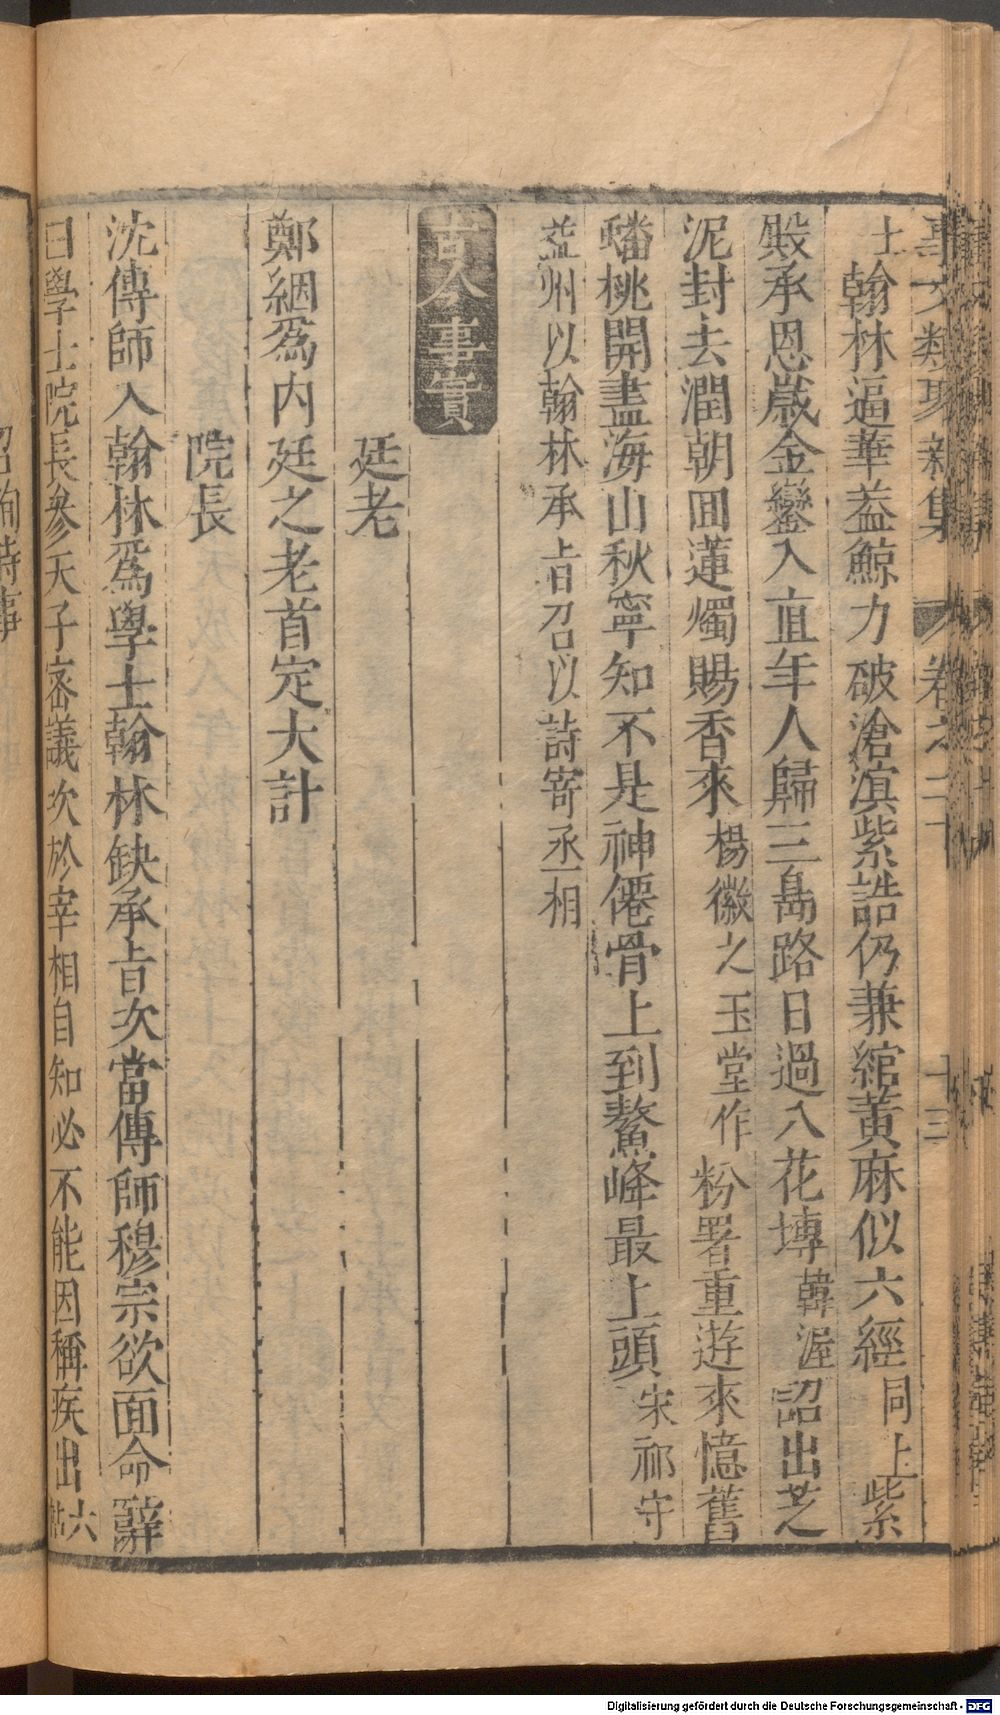 事文類聚新集 卷之二十 十三
上翰林逼華葢鯨力破滄溟紫誥仍兼綰黃麻似六經同上紫
殿承恩歲金鑾入直年人歸三島路日過八花塼韓渥詔出芝
泥封去潤朝囬蓮燭賜香來楊徽之玉堂作粉署重遊來憶舊
蟠桃開盡海山秋寧知不是神僊骨上到鰲峰最上頭宋祁守
益州以翰林承㫖召以詩寄丞相
古今事實
廷老
鄭絪爲内廷之老首定大計
院長
沈傳師入翰林爲學士翰林缺承㫖次當傳師穆宗欲面命辭
曰學士院長參天子密議次於宰相自知必不能因稱疾出六帖
Digitalisierung gefördert durch die Deutsche Forschungsgemeinschaft - DFG